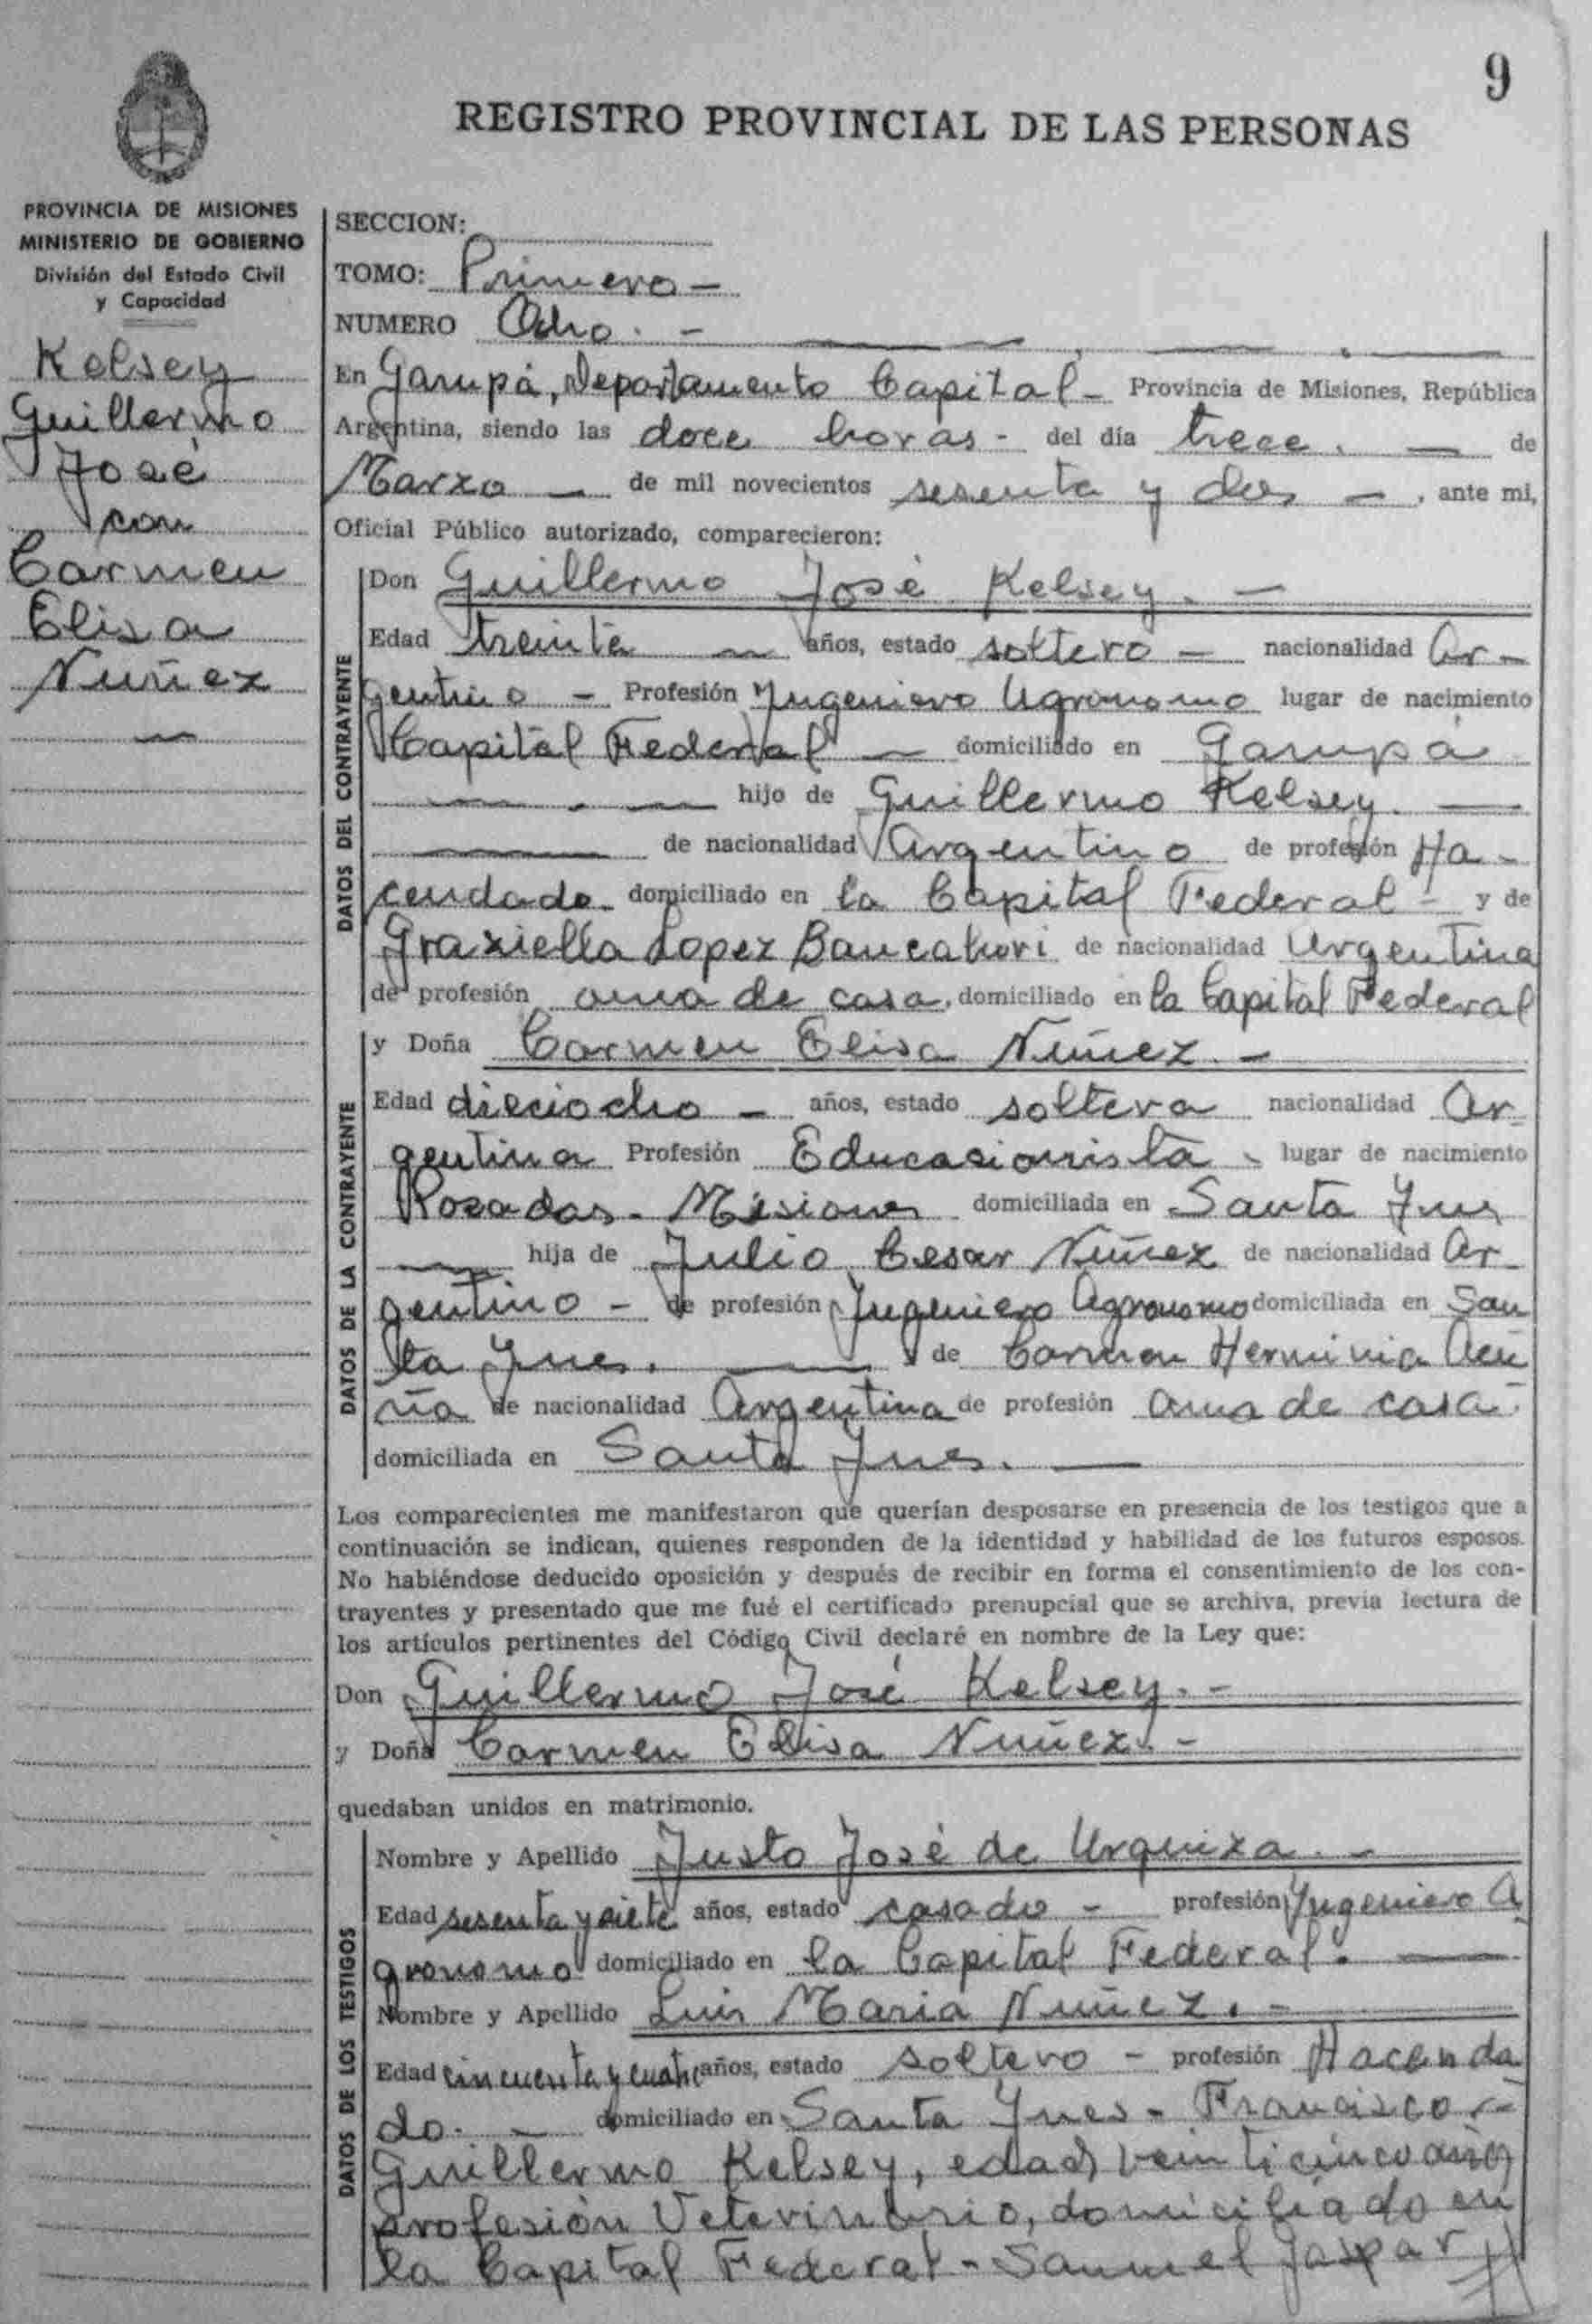 9
REGISTRO PROVINCIAL DE LAS PERSONAS
PROVINCIA DE MISIONES
MINISTERIO DE GOBIERNO
División del Estado Civil
y Capacidad
Kelsey
Guillermo
José
con
Carmen
Elisa
Nuñez
SECCION:
TOMO: Primero -
NUMERO Ocho. -
En Garupá, Departamento Capital - Provincia de Misiones, República
Argentina, siendo las doce horas - del día trece. — de
Marzo — de mil novecientos sesenta y dos —, ante mi,
Oficial Público autorizado, comparecieron:
DATOS DEL CONTRAYENTE
Don Guillermo José Kelsey. —
Edad treinta — años, estado soltero — nacionalidad Ar-
gentino - Profesión Yngeniero Agronomo lugar de nacimiento
Capital Federal — domiciliado en Garupá
— . — hijo de Guillermo Kelsey. —
— de nacionalidad Argentino de profesión Ha-
cendado. domiciliado en la Capital Federal - y de
Graziella Lopez Bancalari de nacionalidad Argentina
de profesión ama de casa, domiciliado en la Capital Federal
DATOS DE LA CONTRAYENTE
y Doña Carmen Elisa Nuñez. -
Edad dieciocho - años, estado soltera nacionalidad Ar
gentina Profesión Educasionista - lugar de nacimiento
Posadas - Misiones domiciliada en Santa Ynes
— hija de Julio Cesar Nuñez de nacionalidad Ar-
gentino - de profesión Yngeniero Agronomo domiciliada en San
ta Ynes. — y de Carmen Herminia Acu
ña de nacionalidad Argentina de profesión ama de casa -
domiciliada en Santa Ynes. —
Los comparecientes me manifestaron que querían desposarse en presencia de los testigos que a
continuación se indican, quienes responden de la identidad y habilidad de los futuros esposos.
No habiéndose deducido oposición y después de recibir en forma el consentimiento de los con-
trayentes y presentado que me fué el certificado prenupcial que se archiva, previa lectura de
los artículos pertinentes del Código Civil declaré en nombre de la Ley que:
Don Guillermo José Kelsey. -
y Doña Carmen Elisa Nuñez. -
quedaban unidos en matrimonio.
DATOS DE LOS TESTIGOS
Nombre y Apellido Justo José de Urquiza. -
Edad sesenta y siete años, estado casado - profesión Yngeniero A
grónomo domiciliado en la Capital Federal. —
Nombre y Apellido Luis Maria Nuñez. -
Edad cincuenta y cuatro años, estado soltero - profesión Hacenda
do. - domiciliado en Santa Ynes - Francisco -
Guillermo Kelsey, edad, veinticinco años
profesión Veterinario, domiciliado en
la Capital Federal - Samuel Gaspar